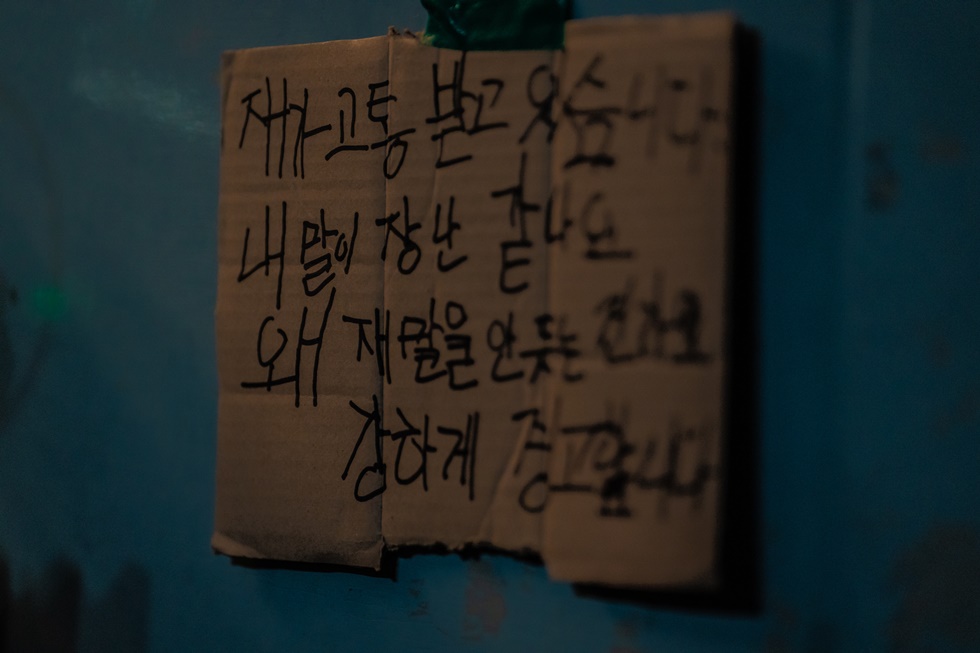 재가 고통 받고 있습니다.
내 말이 장난 같나요
왜 재말을 안듣는
강하게 중고합니다